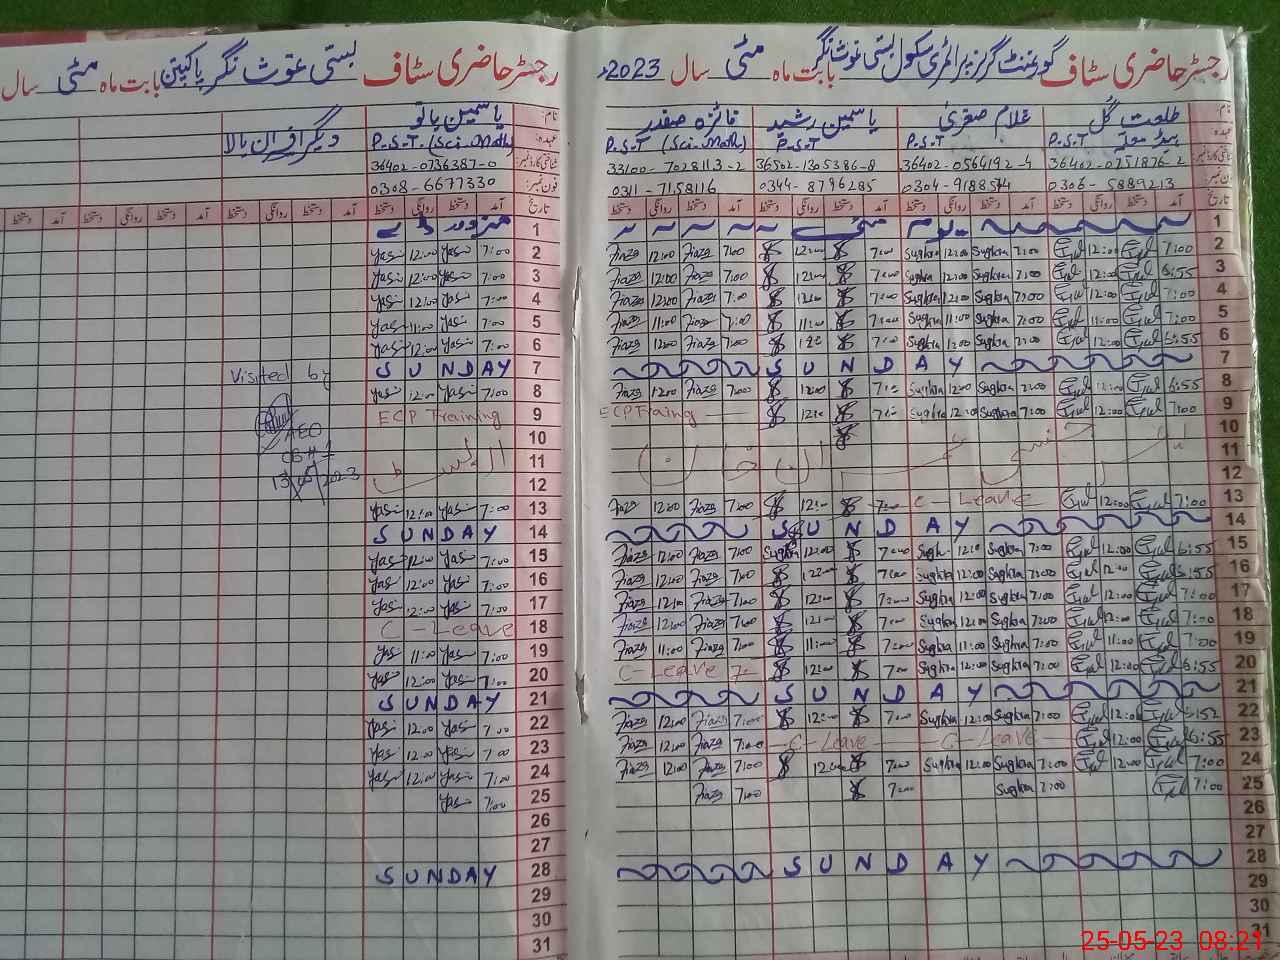 رجسٹر حاضری سٹاف گورنمنٹ گرلز پرائمری سکول بستی غوث نگر بابت ماہ مئی سال 2023ء
نام: طلعت گل غلام صغریٰ یاسمین رشید فائزہ صفدر
عہدہ: ہیڈ معلمہ P.S.T P.S.T P.S.T (Sci. Math)
شناختی کارڈ نمبر: 36402-0751876-2 36402-0564192-4 36502-1305386-8 33100-7028113-2
فون نمبر: 0306-5889213 0304-9188574 0344-8796285 0311-7158116
تاریخ آمد دستخط روانگی دستخط آمد دستخط روانگی دستخط آمد دستخط روانگی دستخط آمد دستخط روانگی دستخط
1 یوم مئی
2 7:00 12:00 Sughra 7:00 Sughra 12:00 7:00 12:00 7:00 Fiaza 12:00 Fiaza
3 6:55 12:00 Sughra 7:00 Sughra 12:00 7:00 12:00 7:00 Fiaza 12:00 Fiaza
4 7:00 12:00 Sughra 7:00 Sughra 12:00 7:00 12:00 7:00 Fiaza 12:00 Fiaza
5 7:00 11:00 Sughra 7:00 Sughra 11:00 7:00 11:00 7:00 Fiaza 11:00 Fiaza
6 6:55 12:00 Sughra 7:00 Sughra 12:00 7:00 12:00 7:00 Fiaza 12:00 Fiaza
7 SUNDAY
8 6:55 12:00 Sughra 7:00 Sughra 12:00 7:00 12:00 7:00 Fiaza 12:00 Fiaza
9 7:00 12:00 Sughra 7:00 Sughra 12:00 7:00 12:00 ECP Traing
10
11
12
13 7:00 12:00 C-Leave 7:00 12:00 7:00 Fiaza 12:00 Fiaza
14 SUNDAY
15 6:55 12:00 Sughra 7:00 12:00 7:00 12:00 Sughra 7:00 Fiaza 12:00 Fiaza
16 6:55 12:00 Sughra 7:00 Sughra 12:00 7:00 12:00 7:00 Fiaza 12:00 Fiaza
17 7:00 12:00 Sughra 7:00 Sughra 12:00 7:00 12:00 7:00 Fiaza 12:00 Fiaza
18 7:00 12:00 Sughra 7:00 Sughra 12:00 7:00 12:00 7:00 Fiaza 12:00 Fiaza
19 7:00 11:00 Sughra 7:00 Sughra 11:00 7:00 11:00 7:00 Fiaza 11:00 Fiaza
20 6:55 12:00 Sughra 7:00 Sughra 12:00 7:00 12:00 C-Leave
21 SUNDAY
22 6:52 12:00 Sughra 7:00 Sughra 12:00 7:00 12:00 7:00 Fiaza 12:00 Fiaza
23 6:55 12:00 C-Leave C-Leave 7:00 Fiaza 12:00 Fiaza
24 7:00 12:00 Sughra 7:00 Sughra 12:00 7:00 12:00 7:00 Fiaza 12:00 Fiaza
25 7:00 Sughra 7:00 7:00 7:00 Fiaza
26
27
28 SUNDAY
29
30
31
رجسٹر حاضری سٹاف بستی غوث نگر پاکپتن بابت ماہ مئی سال
یاسمین بانو دیگر افسران بالا
P.S.T. (Sci. Math)
36402-0736387-0
0308-6677330
آمد دستخط روانگی دستخط آمد دستخط روانگی دستخط آمد دستخط روانگی دستخط
1 مزدور ڈے
2 7:00 Yasn 12:00 Yasn
3 7:00 Yasn 12:00 Yasn
4 7:00 Yasn 12:00 Yasn
5 7:00 Yasn 11:00 Yasn
6 7:00 Yasn 12:00 Yasn
7 SUNDAY Visited by
8 7:00 Yasn 12:00 Yasn
9 ECP Training
10 AEO
11
12 13/05/2023
13 7:00 Yasn 12:00 Yasn
14 SUNDAY
15 7:00 Yasn 12:00 Yasn
16 7:00 Yasn 12:00 Yasn
17 7:00 Yasn 12:00 Yasn
18 C-Leave
19 7:00 Yasn 11:00 Yasn
20 7:00 Yasn 12:00 Yasn
21 SUNDAY
22 7:00 Yasn 12:00 Yasn
23 7:00 Yasn 12:00 Yasn
24 7:00 Yasn 12:00 Yasn
25 7:00 Yasn
26
27
28 SUNDAY
29
30
31
25-05-23 08:21